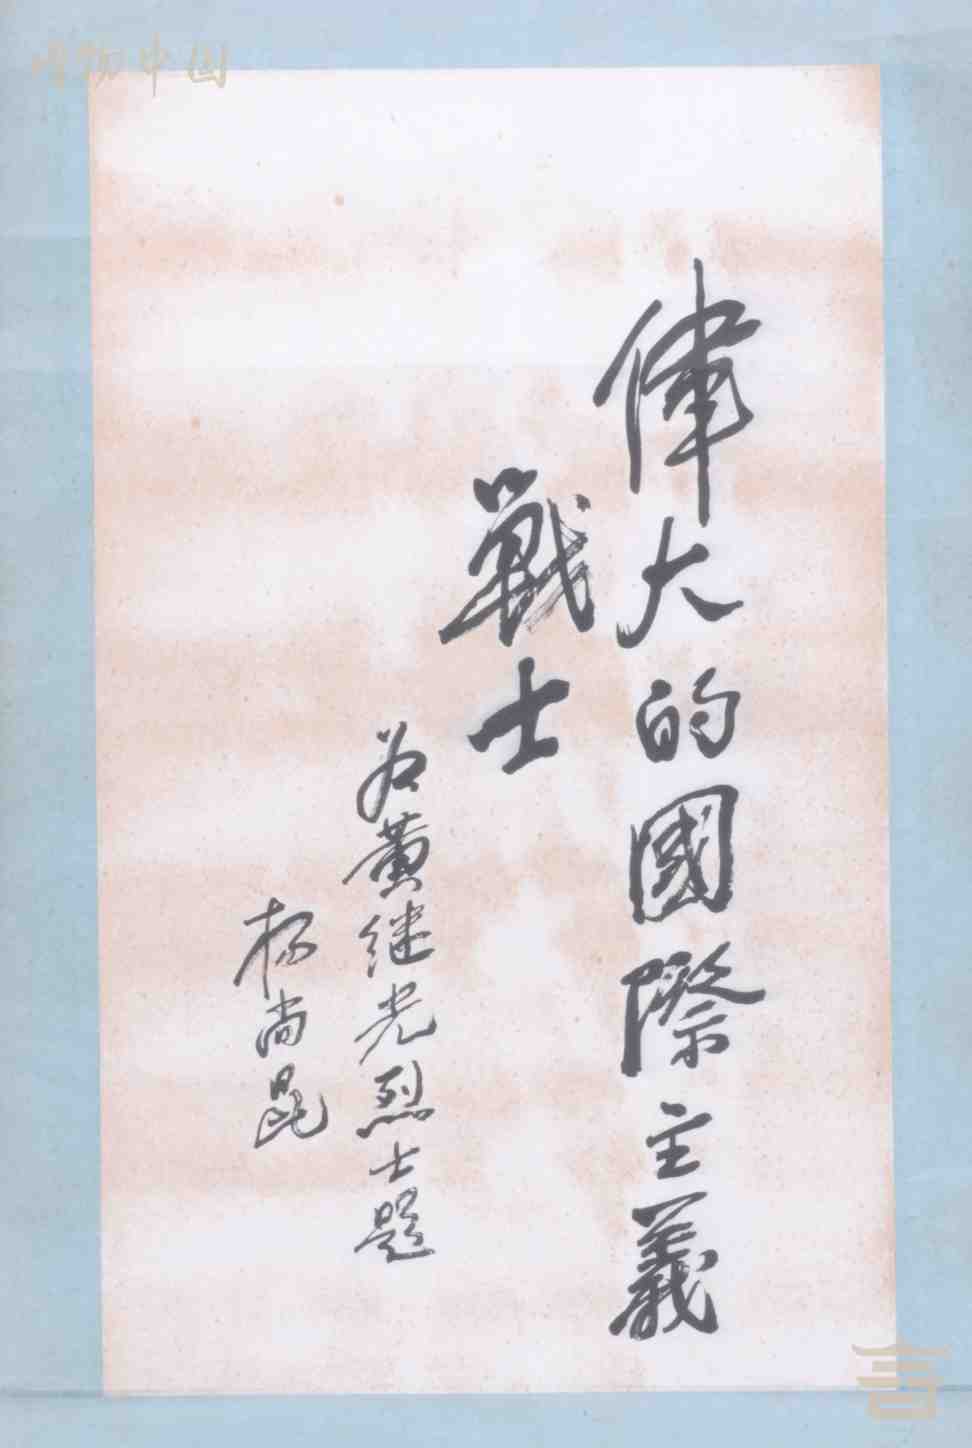 偉大的國際主義
戰士
为黄继光烈士题
杨尚昆
博物中国